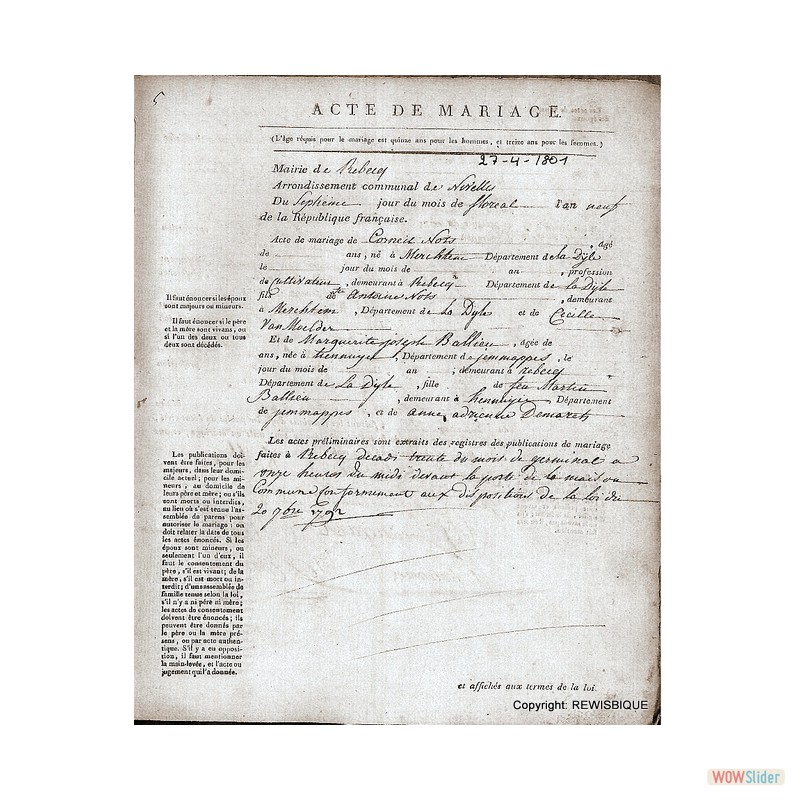 5
ACTE DE MARIAGE.
(L'âge réquis pour le mariage est quinze ans pour les hommes, et treize ans pour les femmes.)
27-4-1801
Mairie de Rebecq
Arrondissement communal de Nivelles
Du Septième jour du mois de floreal l'an neuf
de la République française.
Acte de mariage de Corneil Nots , âgé
de ans, né à Merchtem Département de la Dÿle
le jour du mois de an , profession
de Cultivateur, demeurant à Rebecq Département de La Dÿle
fils de Antoine Nots , demeurant
à Merchtem, Département de La Dyle et de Cecille
Van Moelder
Et de Marguerite joseph Ballieu, agée de
ans, née à hennuyer, Département de jemmappes, le
jour du mois de an ; demeurant à rebecq
Département de La Dyle, fille de feu Martin
Ballieu , demeurant à hennuyer Département
de jemmappes, et de anne adrienne Demaret
Les actes préliminaires sont extraits des registres des publications de mariage
faites à Rebecq decadi trente du mois de germinal a
onze heures du midi devant la porte de la maison
Commune conformement aux dispositions de la loi du
20 7bre 1792
Il faut énoncer si les époux
sont majeurs ou mineurs.
Il faut énoncer si le père
et la mère sont vivans, ou
si l'un des deux ou tous
deux sont décédés.
Les publications doivent
être faites, pour les
majeurs, dans leur domicile
actuel; pour les mineurs,
au domicile de
leurs père et mère; ou s'ils
sont morts ou interdits,
au lieu où s'est tenue l'assemblée
de parens pour
autoriser le mariage: on
doit relater la date de tous
les actes énoncés. Si les
époux sont mineurs, ou
seulement l'un d'eux, il
faut le consentement du
père, s'il est vivant; de la
mère, s'il est mort ou interdit;
d'une assemblée de
famille tenue selon la loi,
s'il n'y a ni père ni mère;
les actes de consentement
doivent être énoncés; ils
peuvent être donnés par
le père ou la mère présens,
ou par acte authentique.
S'il y a eu opposition,
il faut mentionner
la main-levée, et l'acte ou
jugement qui l'a donnée.
et affichés aux termes de la loi.
Copyright: REWISBIQUE
WOWSlider